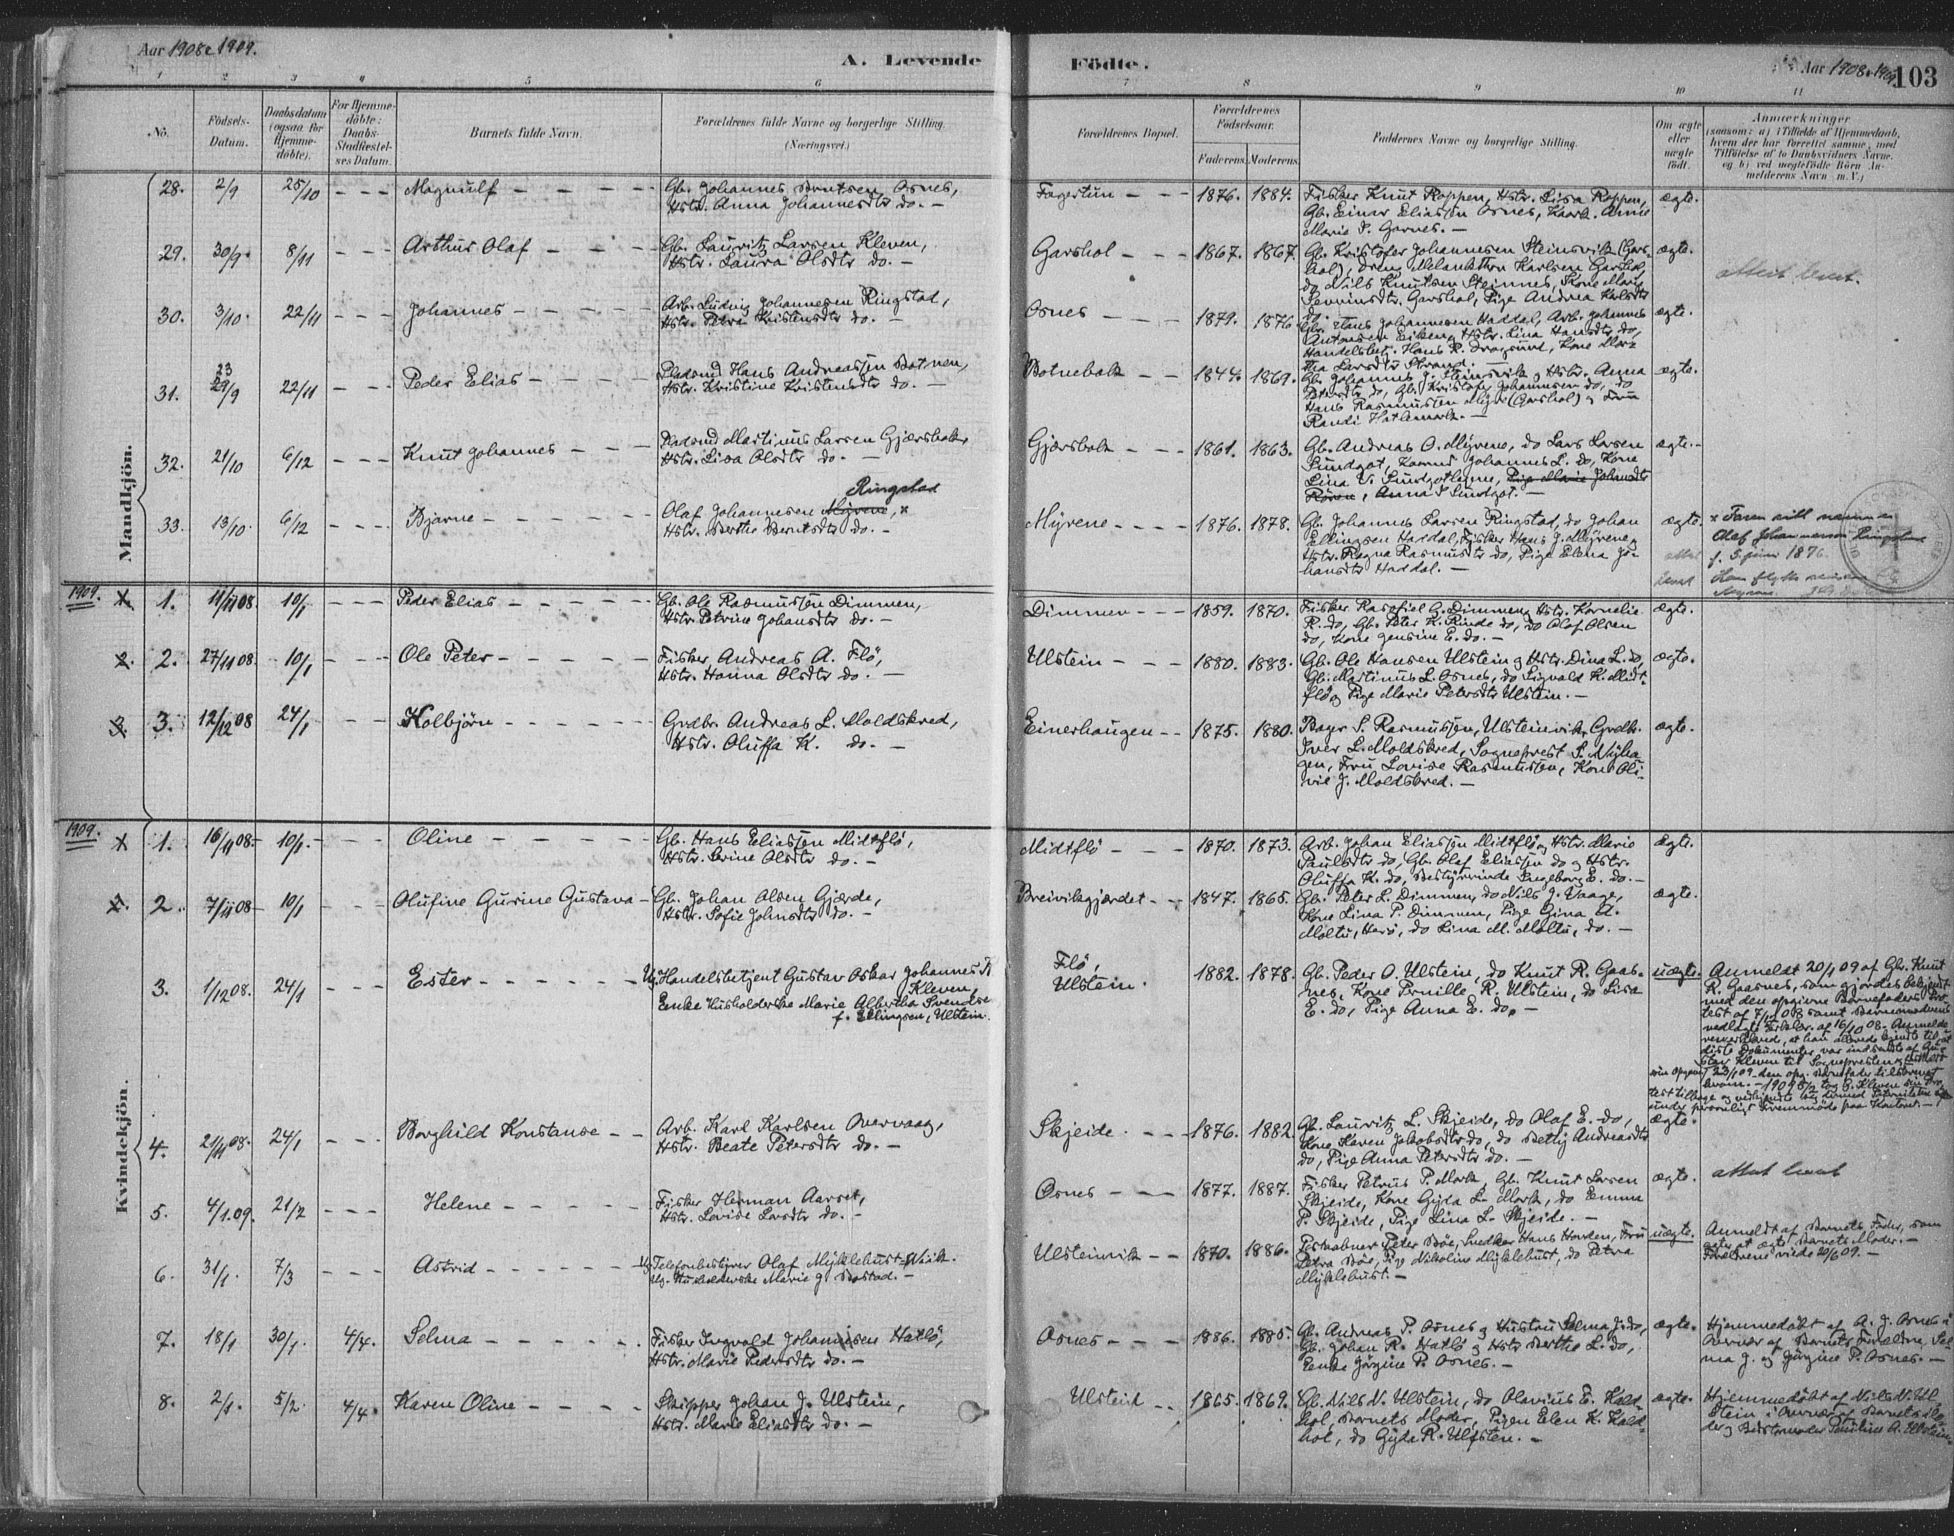 Aar 1908 & 1909.
A. Levende
Födte.
Aar 1908 & 1909
103
1 2 3 4 5 6 7 8 9 10 11
No.
Födsels-Datum.
Daabsdatum (ogsaa for Hjemme-döbte).
For Hjemme-döbte: Daabs-Stadfæstel-ses Datum.
Barnets fulde Navn.
Forældrenes fulde Navne og borgerlige Stilling. (Næringsvei.)
Forældrenes Bopæl.
Forældrenes Födselsaar.
Faderens. Moderens.
Faddernes Navne og borgerlige Stilling.
Om ægte eller uægte født.
Anmærkninger
(saasom: a) i Tilfælde af Hjemmedaab, hvem der har forrettet samme, med Tilföielse af to Daabsvidners Navne, og b) ved uægtefødte Börn An-melderens Navn m. V.)
Mandkjön.
28. 2/9 25/10 Magnulf Gb. Johannes Berntsen Osnes,
Hstr. Anna Johannesdtr do. Fagertun 1876. 1884. ægte.
Fisker Knut Roppen, Hstr. Lisa Roppen,
Gb. Einar Eliassen Osnes,
Marie P. Garnes.
29. 30/9 8/11 Arthur Olaf Gb. Lauritz Larsen Kleven,
Hstr. Laura Olsdtr do. Garshol 1867. 1867. ægte.
Gb. Kristofer Johannesen Steinsvik (Gars-
hol), dreng Melankthon Karlsen Garshol,
do Nils Knutsen Steinnes, Kone Marie
Severinsdtr. Garshol, Pige Andrea
attest levert.
30. 3/10. 22/11 Johannes Arb. Ludvig Johannesen Ringstad,
Hstr. Petra Kristensdtr do. Osnes 1879. 1876 ægte.
Gb. Hans Johannesen Haddal, Arb. Johannes
Antonsen Eiken, Hstr. Lina Hansdtr do,
Handelsbetj. Hans R. Dragsund, Kone Mar-
tha Larsdtr Strand.
31. 23/9 22/11 Peder Elias Pladsmd Hans Andreassen Botnen,
Hstr. Kristine Kristensdtr do. Botnebak 1844. 1869. ægte.
Gb. Johannes J. Steinsvik og Hstr. Anna
Petersdtr do, Gb. Kristofer Johannesen do, do
Hans Rasmussen Myhre (Garshol) og Fru
Randi Hatlemark.
32. 21/10 6/12 Knut Johannes Pladsmd Martinus Larsen Gjærsbak
Hstr. Lisa Olsdtr do. Gjærsbak 1861. 1863. ægte.
Gb. Andreas O. Myrene, do Lars Larsen
Sundgot, Johannes L. do, Kone
Lina V. Sundgot, Pige Marie Johansdtr
Røren, Anna S Sundgot.
33. 13/10. 6/12 Bjarne Olaf Johannesen Myrene, x Ringstad
Hstr. Berthe Berntsdtr do. Myrene 1876. 1878. ægte.
Gb. Johannes Larsen Ringstad, do Johan
Ellingsen Haddal, Fisker Hans J. Myrene,
Hstr. Ragna Rasmusdtr do, Pige Elena Jo-
hansdtr Haddal.
x Faren
Olaf Johannesen Ringstad
f. 5 juni 1876.
1909.
1. 11/11 08. 10/1 Peder Elias Gb. Ole Rasmussen Dimmen,
Hstr. Petrine Johansdtr do. Dimmen 1859. 1870. ægte.
Fisker G. Dimmen, Hstr. Kornelie
R. do, Gb. Peter K. Rinde do, do Olaf Olsen
do, Kone Jensine E. do.
2. 2. 27/11 08. 10/1 Ole Peter Fisker Andreas A. Flö,
Hstr. Hanna Olsdtr do. Ulstein 1880. 1883. ægte.
Gb. Ole Hansen Ulstein og Hstr. Dina L. do,
Gb. Martinus L. Osnes, do Sigvald K. Midt-
flö og Pige Marie Petersdtr Ulstein.
3. 3. 12/12 08 24/1 Kolbjörn Grdbr. Andreas L. Moldskred,
Hstr. Oluffa K. do. Einerhaugen 1875. 1880. ægte.
S. Rasmussen, Ulsteinvik, Grdb.
Iver L. Moldskred, Sogneprest S. Nyha-
gen, Fru Lovise Rasmussen, Kone Oli-
vie J. Moldskred.
Kvindekjön.
1909.
1. 16/11 08. 10/1. Oline Gb. Hans Eliassen Midtflö,
Hstr. Serine Olsdtr do. Midtflö 1870. 1873. Ægte.
Arb. Johan Eliassen Midtflö og Hstr. Marie
Paulsdtr do, Gb. Olaf Eliassen do og Hstr.
Oluffa K. do, Bestyrerinde Ingeborg E. do.
2. 7/11 08 10/1 Olufine Gurine Gustava Gb. Johan Olsen Gjærde,
Hstr. Sofie Johnsdtr do. Breivikgjærdet 1847. 1865. ægte.
Gb. Peter L. Dimmen, do Nils J. Vaage,
Kone Lina P. Dimmen, Pige Gina A.
Moltu, Herö, do Lina M. Moltu, do.
3. 1/12 08. 24/1 Ester Handelsbetjent Gustav Oskar Johannes
Kleven,
Enke Husholderske Marie Albertha Svendsen
f. Ellingsen, Ulstein. Flö, Ulstein. 1882. 1878. uægte.
Gb. Peder O. Ulstein, do Knut R. Gaas-
nes, Kone Pernille R. Ulstein, do Lisa
E. do, Pige Anna E. do.
Anmeldt 20/1 09 af Gb. Knut
R. Gaasnes, som gjordes bekjendt
med den opgivne Barnefaders
4. 21/11 08. 24/1 Borghild Konstanse Arb. Karl Karlsen Overvaag,
Hstr. Beate Petersdtr do. Skjeide. 1876. 1882. ægte.
Gb. Lauritz L. Skjeide, do Olaf E. do,
Kone Karen Jakobsdtr do, do Betty Andreasdtr
do, Pige Anna Petersdtr do.
5. 4/1 09. 21/2 Helene Fisker Herman Aarset,
Hstr. Lovise Larsdtr do. Osnes 1877. 1887. ægte.
Fisker Petrus P. Mork, Gb. Knut Larsen
Skjeide, Kone Gyda L. Mork, do Emma
P. Skjeide, Pige Lina L. Skjeide.
attest levert
6. 31/1. 7/3 Astrid Ug. Telefonbestyrer Olaf Myklebust,
Ug. Husholderske Marie J. Bostad. Ulsteinvik 1870. 1886. uægte.
Peter Böe, Snedker Hans Hovden, Fru
Petra Böe, Pig. Nikolin Myklebust, do Petra
Myklebust.
Anmeldt af Barnets Fader, som
agter at ægte Barnets Moder.
Forældrene viede 20/6 09.
7. 18/1 30/1 4/4. Selma Fisker Ingvald Johannesen Hatlö,
Hstr. Marie Pedersdtr do. Osnes 1886. 1885. ægte.
Gb. Andreas P. Osnes og Hustru Selma J. do,
Gb. Johan R. Hatlö og Hstr Berthe L. do,
Enke Jörgine P. Osnes.
Hjemmedöbt af A. J. Osnes i
Overvær af Barnets Forældre, Sel-
ma J. og Jörgine P. Osnes.
8. 2/1. 5/2. 4/4. Karen Oline Skipper Johan J. Ulstein,
Hstr. Marie Eliasdtr do. Ulstein 1865. 1869. ægte.
Gb. Nils N. Ulstein, do Olavius E. Kald-
hol, Barnets Moder, Pigen Elen K. Kald-
hol, do Gyda R. Ulfsten.
Hjemmedöbt af Nils N. Ul-
stein i Overvær af Barnets Mo-
der og Bedstemoder Pauline A. Ulstein.